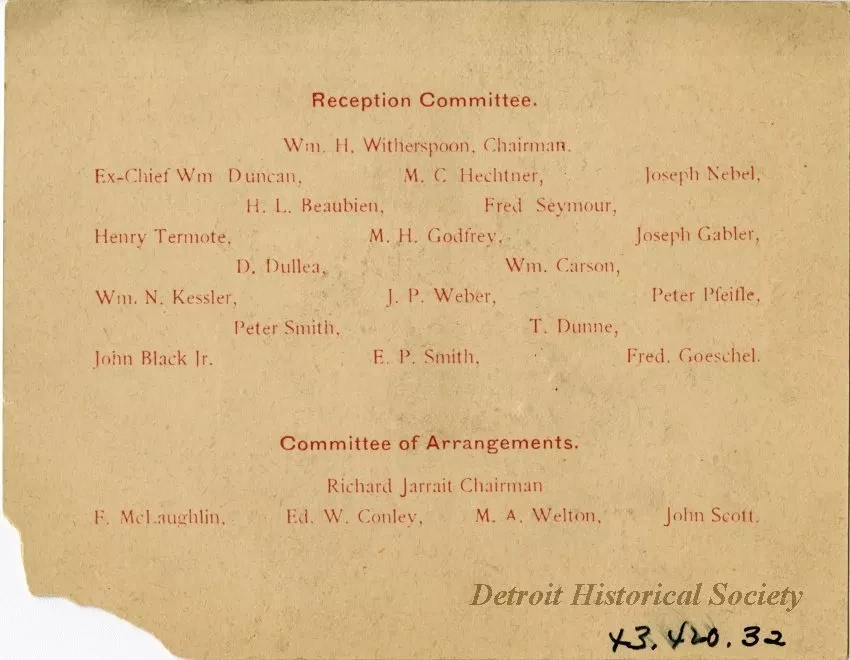 Reception Committee.
Wm. H. Witherspoon, Chairman.
Ex-Chief Wm Duncan, M. C Hechtner, Joseph Nebel,
H. L. Beaubien, Fred Seymour,
Henry Termote, M. H. Godfrey, Joseph Gabler,
D. Dullea, Wm. Carson,
Wm. N. Kessler, J. P. Weber, Peter Pfeifle,
Peter Smith, T. Dunne,
John Black Jr. E. P. Smith, Fred. Goeschel.
Committee of Arrangements.
Richard Jarrait Chairman
F. McLaughlin, Ed. W. Conley, M. A. Welton, John Scott.
Detroit Historical Society
43.420.32